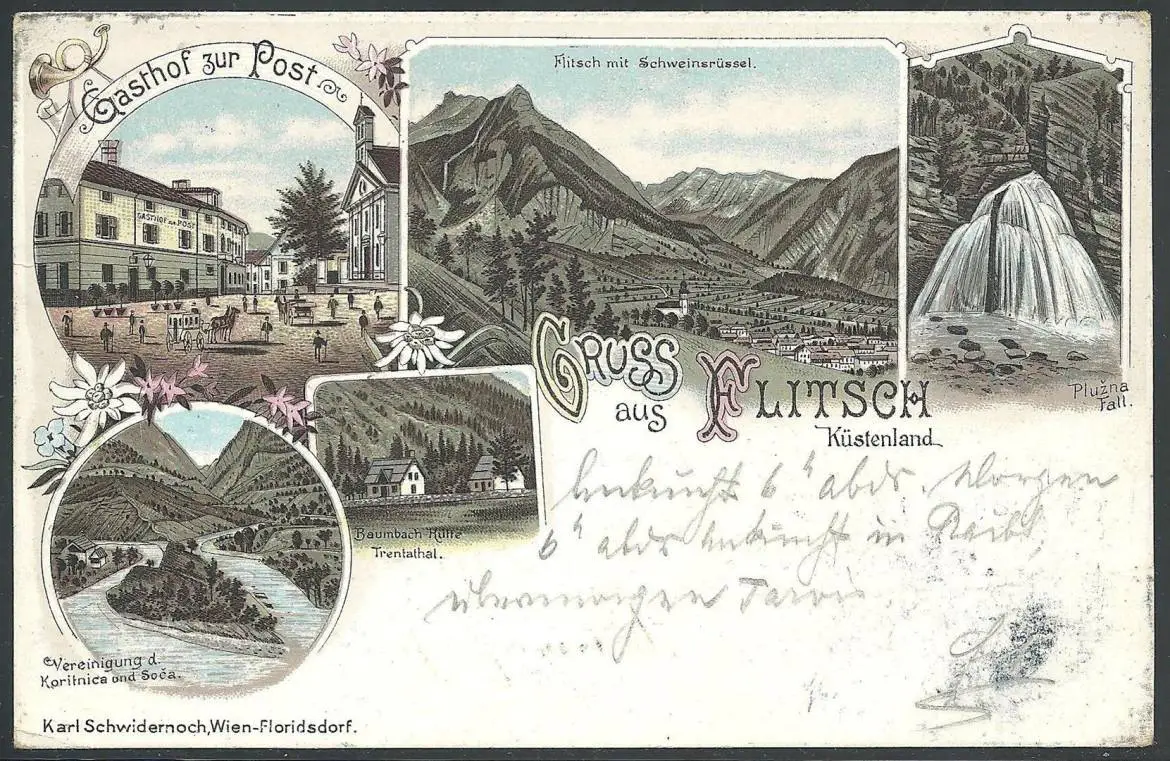 Gasthof zur Post
GASTHOF zur POST
Flitsch mit Schweinsrüssel.
Plužna
Fall.
Gruss
aus Flitsch
Küstenland
Baumbach Hütte
Trentathal.
Vereinigung d.
Koritnica und Soča.
Ankunft 6 abds. Morgen
6 abds Ankunft in Raibl,
übermorgen Tarvis
Karl Schwidernoch, Wien-Floridsdorf.